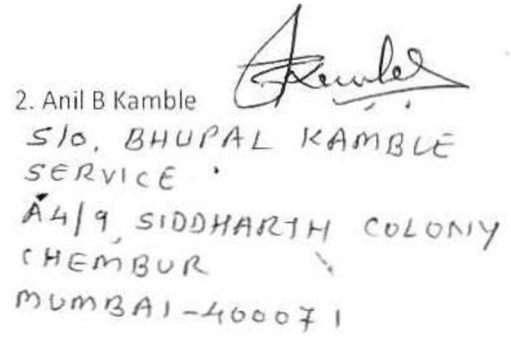 2. Anil B Kamble
S/O. BHUPAL KAMBLE
SERVICE.
A4/9, SIDDHARTH COLONY
CHEMBUR
MUMBAI-400071